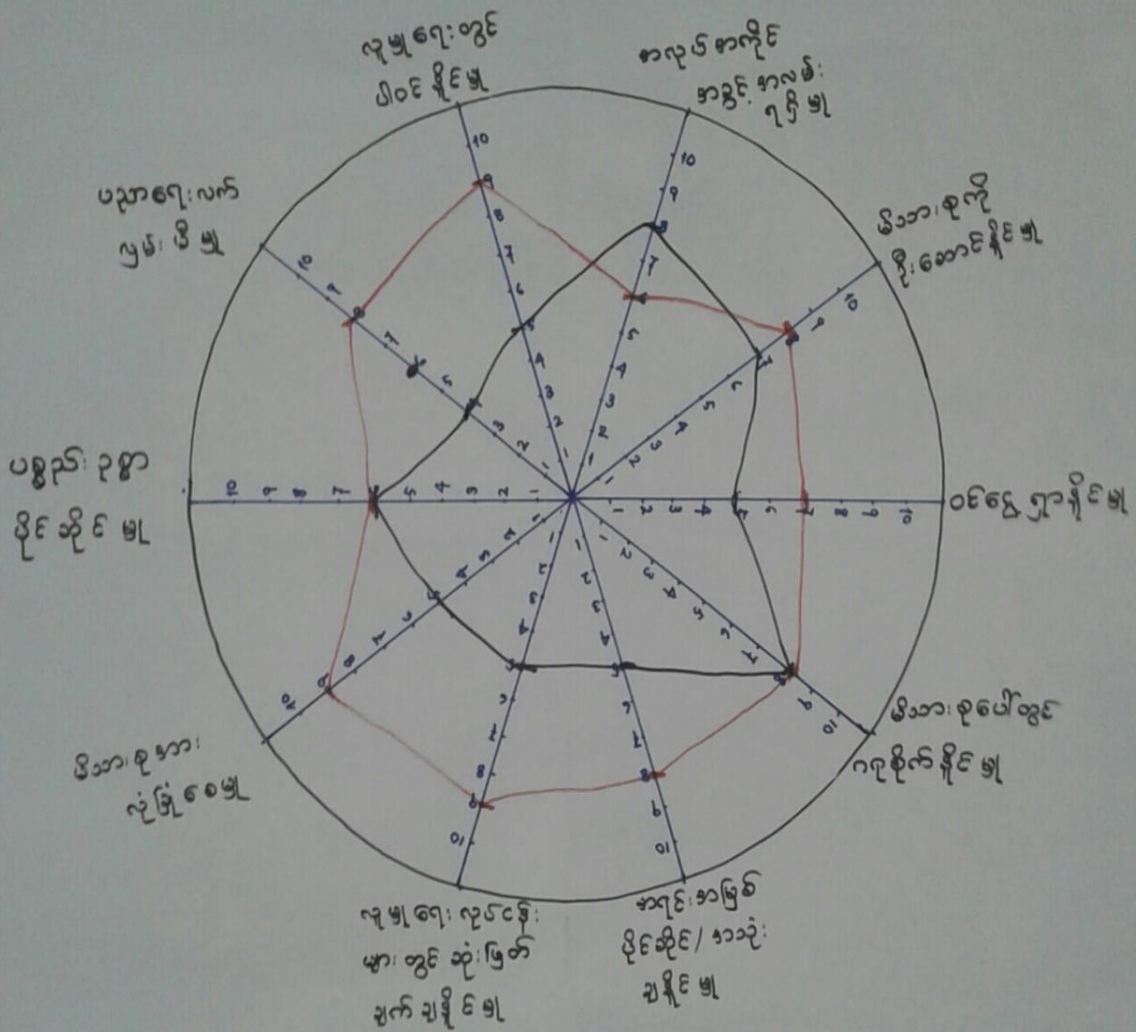 လူမှုရေးတွင်
ပါဝင်နိုင်မှု
အလုပ်အကိုင်
အခွင့်အလမ်း
ရရှိမှု
မိသားစုကို
ဦးဆောင်နိုင်မှု
ဝင်ငွေရှာနိုင်မှု
မိသားစုပေါ်တွင်
ဂရုစိုက်နိုင်မှု
အရင်းအမြစ်
ပိုင်ဆိုင်/အသုံး
ချနိုင်မှု
လူမှုရေးလုပ်ငန်း
များတွင်ဆုံးဖြတ်
ချက်ချနိုင်မှု
မိသားစုအား
လုံခြုံစေမှု
ပစ္စည်းဥစ္စာ
ပိုင်ဆိုင်မှု
ပညာရေးလက်
လှမ်းမီမှု